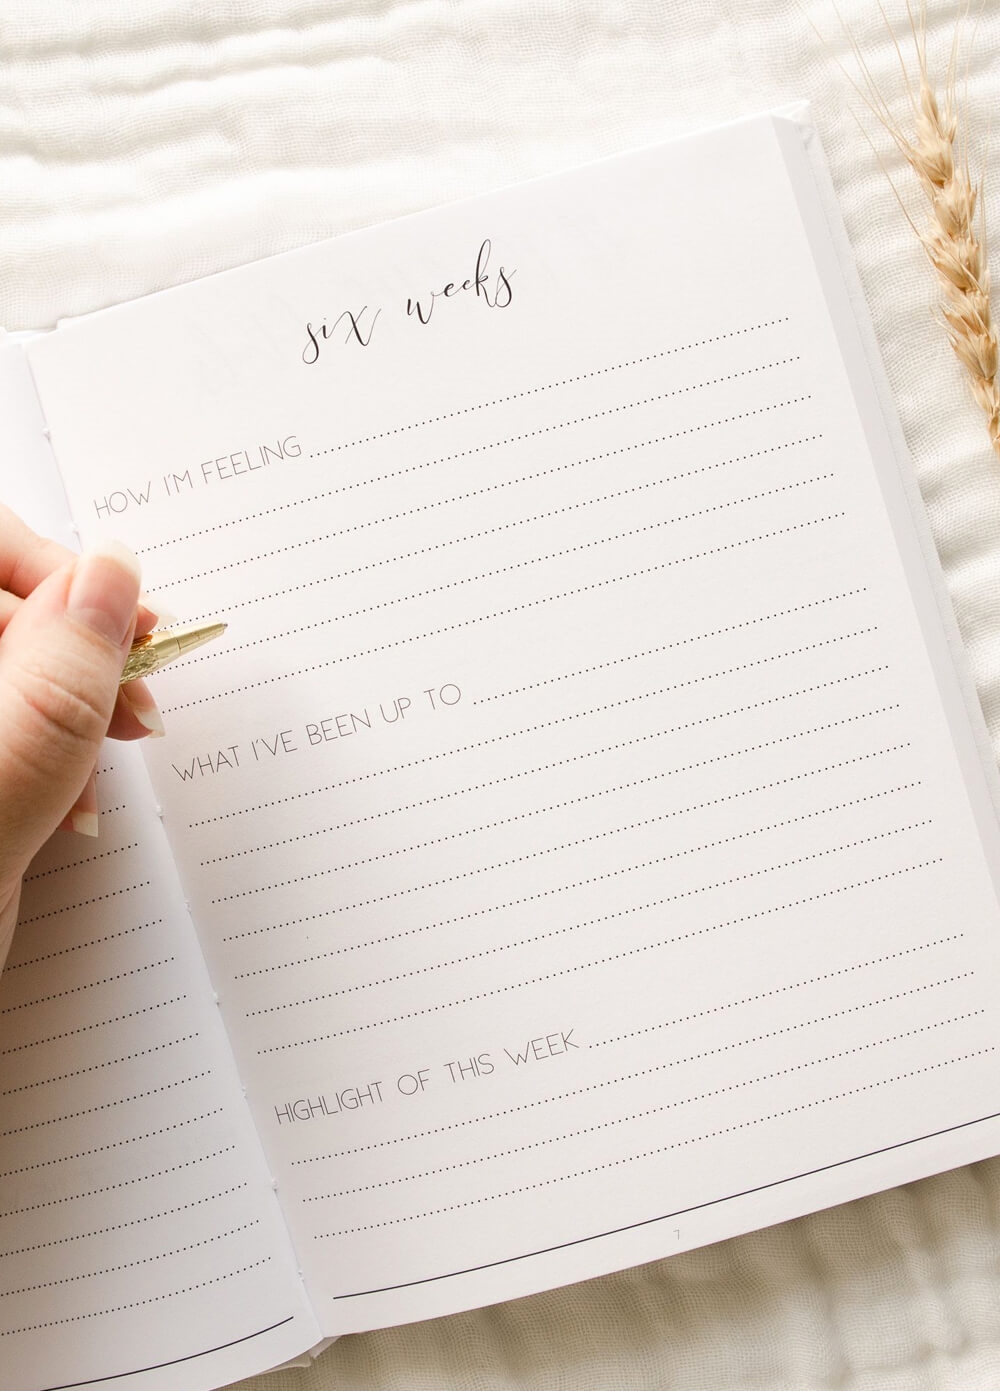 six weeks
HOW I'M FEELING
WHAT I'VE BEEN UP TO
HIGHLIGHT OF THIS WEEK
7